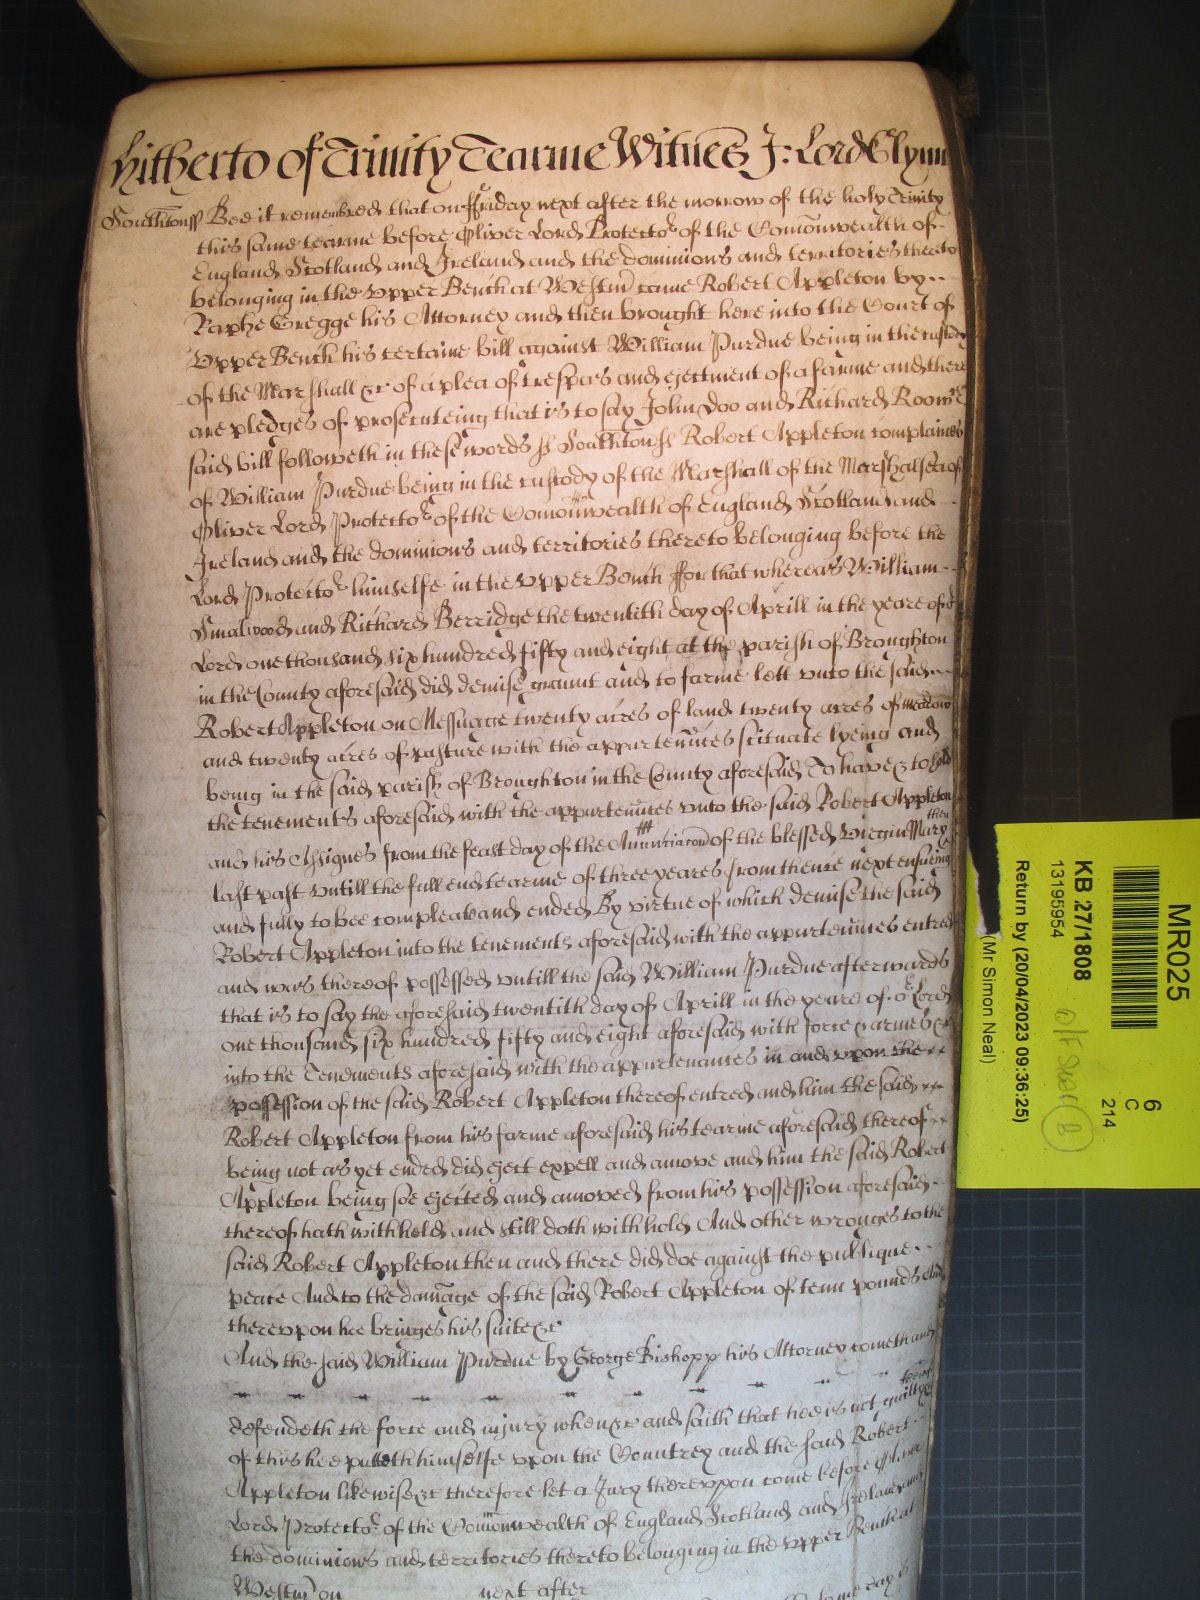 Hitherto of Trinity Tearme Witnes J: Lord Glynn
Southtonss Bee it remembred that on ffriday next after the morrow of the holy Trinity
this same tearme before Oliver Lord Protector of the Comonwealth of
England Scotland and Ireland and the dominions and territories thereto
belonging in the Upper Bench at Westm came Robert Appleton by
Raphe Gregge his Attorney and then brought here into the Court of
Upper Bench his certaine bill against William Purdue being in the custody
of the Marshall &c of a plea of trespas and ejectment of a farme and there
are pledges of prosecuteing that is to say John Doo and Richard Roo wch
said bill followeth in these words ss Southton ss Robert Appleton complaines
of William Purdue being in the custody of the Marshall of the Marshalsea of
Oliver Lord Protector of the Comonwealth of England Scotland and
Ireland and the dominions and territories thereto belonging before the
Lord Protector himselfe in the Upper Bench ffor that whereas William
Smalwood and Richard Berridge the twentith day of Aprill in the yeare of or
Lord one thousand six hundred fifty and eight at the parish of Broughton
in the County aforesaid did demise graunt and to farme lett unto the said
Robert Appleton on Messuage twenty acres of land twenty acres of meadow
and twenty acres of pasture with the appurtennces scituate lyeing and
being in the said parish of Broughton in the County aforesaid To have & to hold
the tenements aforesaid with the appurtennces unto the said Robert Appleton
and his Assignes from the feast day of the Annunciacon of the blessed Virgin Mary then
last past untill the full end tearme of three yeares from thence next ensueing
and fully to bee compleat and ended By virtue of which demise the said
Robert Appleton into the tenements aforesaid with the appurtennces entred
and was thereof possessed untill the said William Purdue afterwards
that is to say the aforesaid twentith day of Aprill in the yeare of or Lord
one thousand six hundred fifty and eight aforesaid with force & armes &c
into the Tenements aforesaid with the appurtenances in and upon the
possession of the said Robert Appleton thereof entred and him the said
Robert Appleton from his farme aforesaid his tearme aforesaid thereof
being not as yet ended did eject expell and amove and him the said Robert
Appleton being soe ejected and amoved from his possession aforesaid
thereof hath withheld and still doth withhold And other wronges to the
said Robert Appleton then and there did doe against the publique
peace And to the damage of the said Robert Appleton of tenn pounds And
thereupon hee bringes his suite &c
And the said William Purdue by George Bishopp his Attorney cometh and
defendeth the force and injury when &c and saith that hee is not guilty thereof
of this hee putteth himselfe upon the Countrey and the said Robert
Appleton likewise &c therefore let a Jury thereupon come before Oliver
Lord Protector of the Comonwealth of England Scotland and Ireland and
the dominions and territories thereto belonging in the Upper Bench at
Westm on next after
same day is
MR025
6
C
214
KB 27/1808
13195954
Return by (20/04/2023 09:36:25)
(Mr Simon Neal)